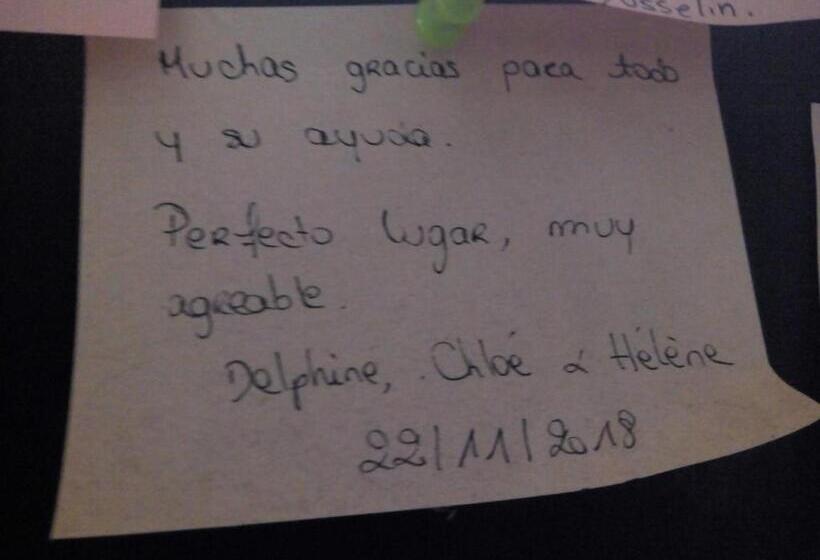 usselin.
Muchas gracias para todo
y su ayuda.
Perfecto lugar, muy
agreable.
Delphine, Chloé & Hélène
22/11/2018